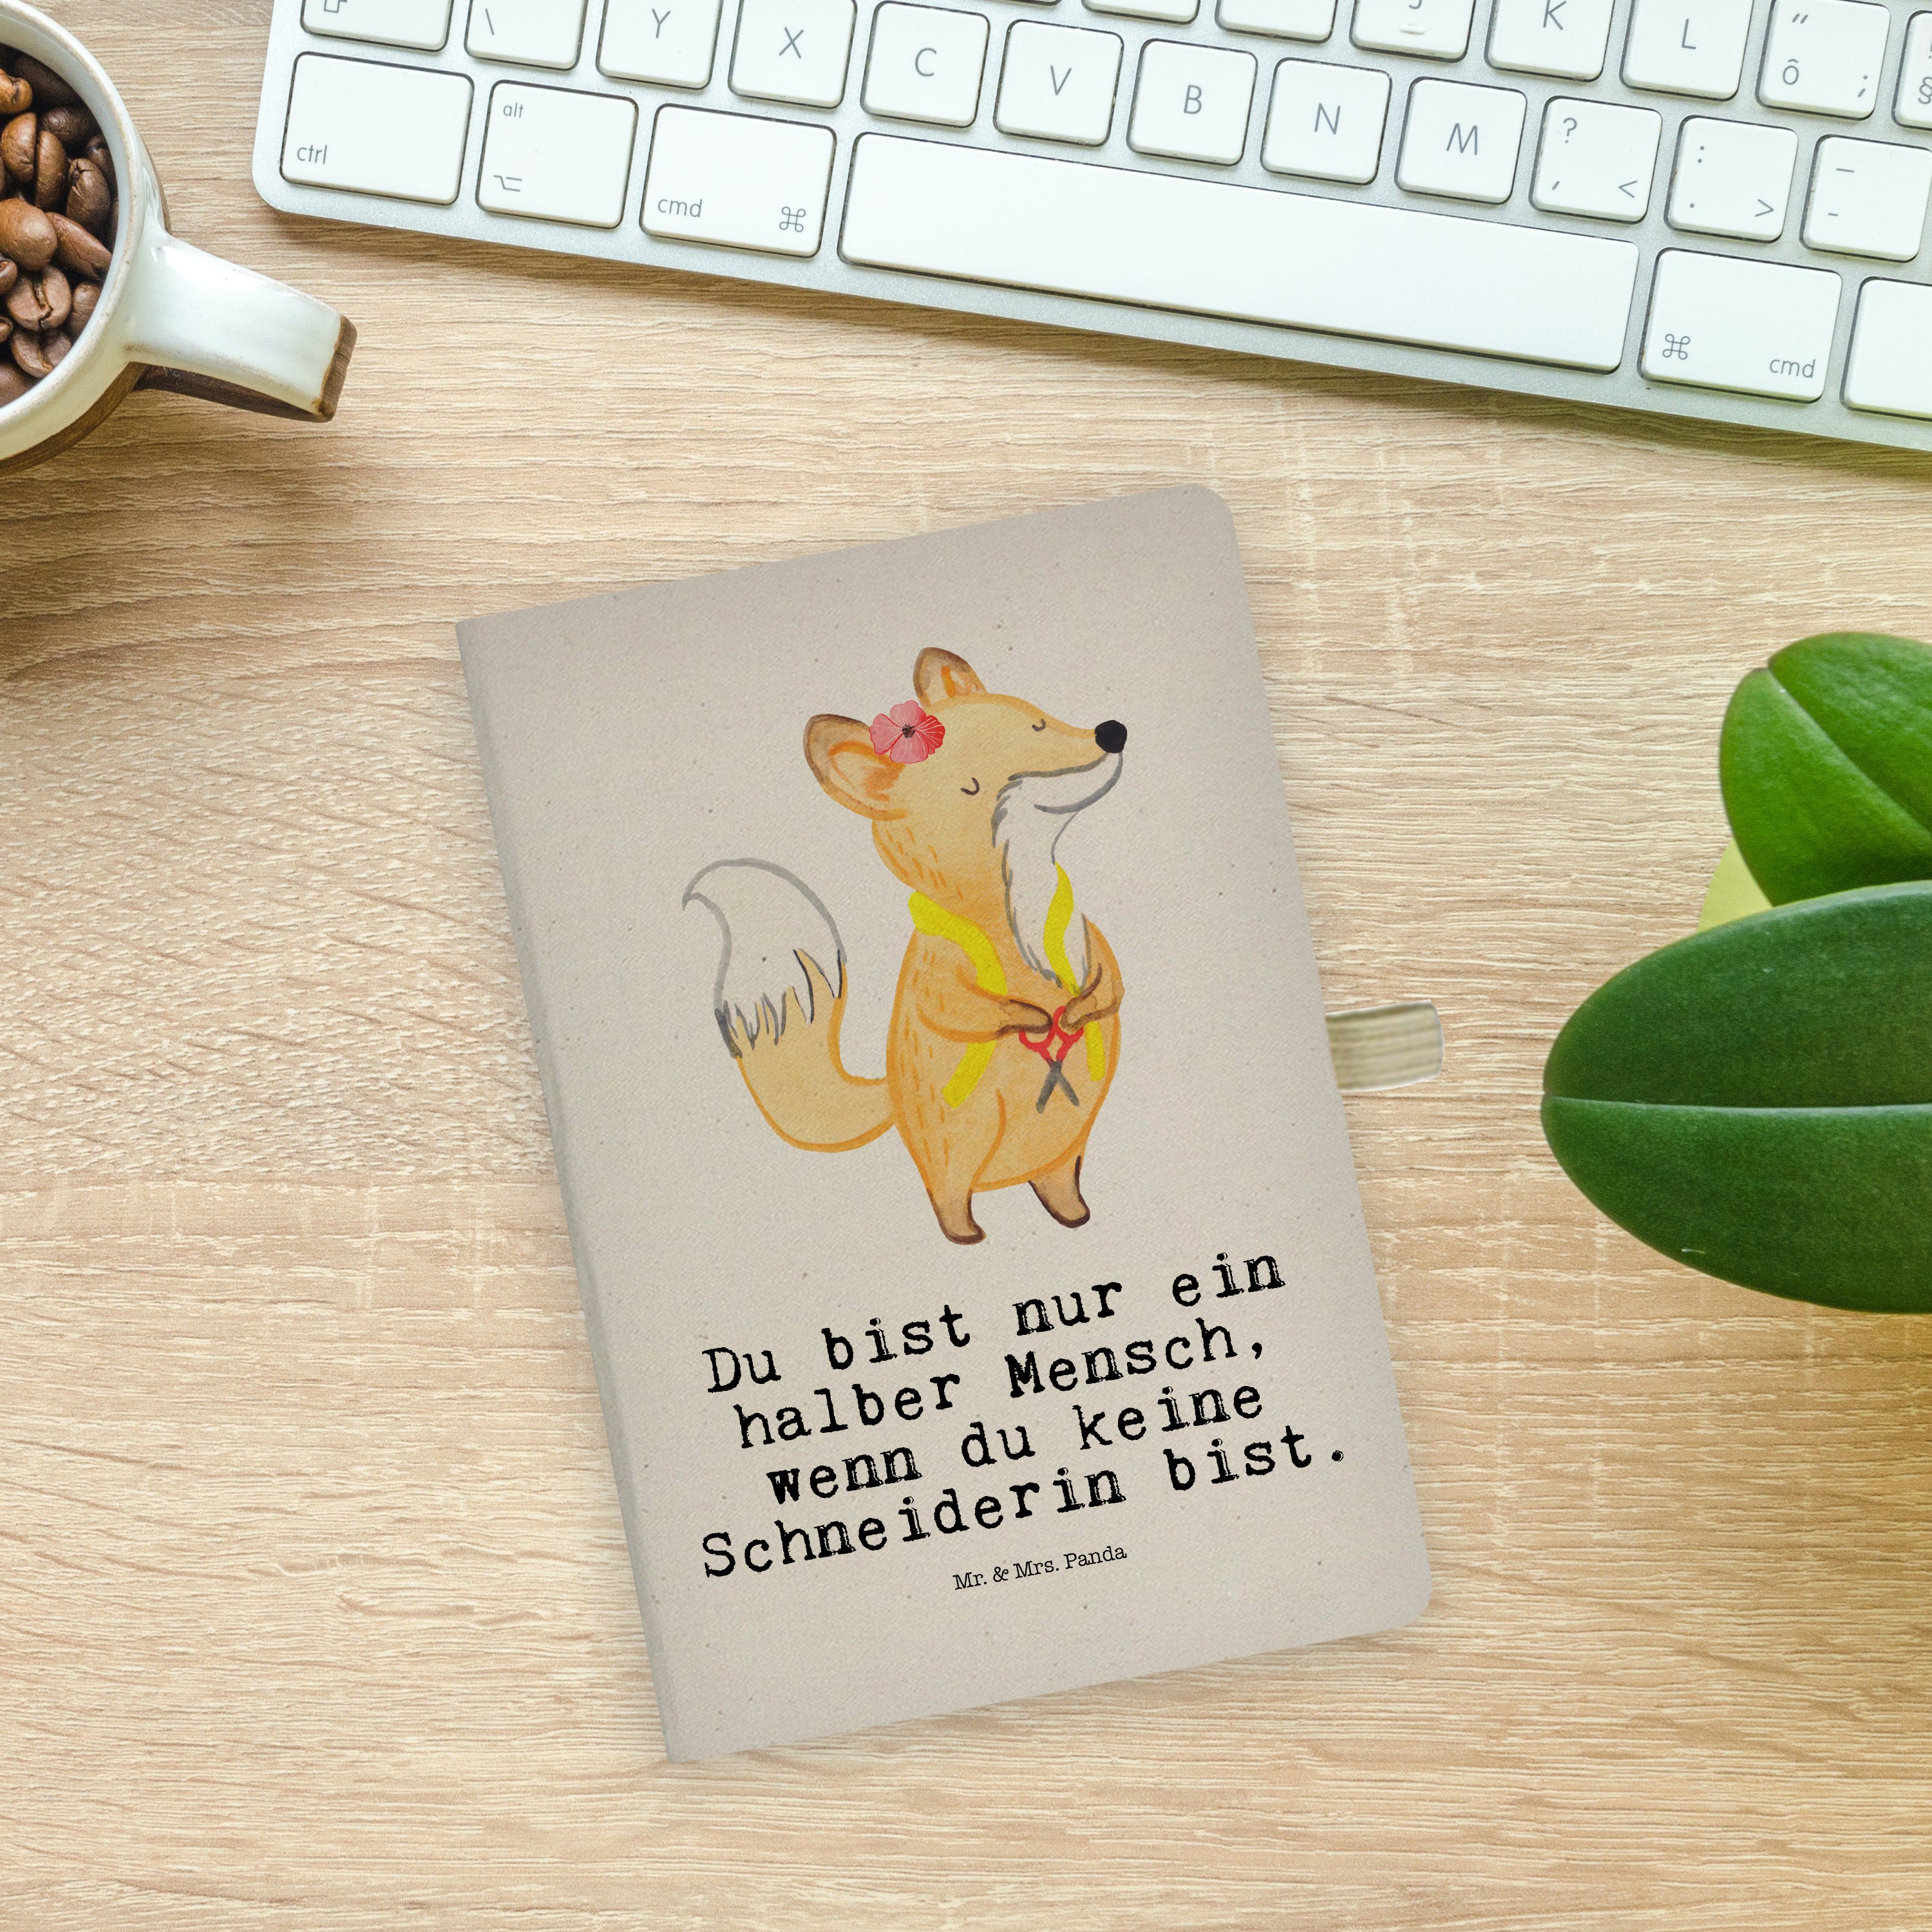 \ Y X C V B N M K L
ctrl alt cmd ⌘ ? , < : . > _ - " ô ; §
⌘ cmd
Du bist nur ein
halber Mensch,
wenn du keine
Schneiderin bist.
Mr. & Mrs. Panda